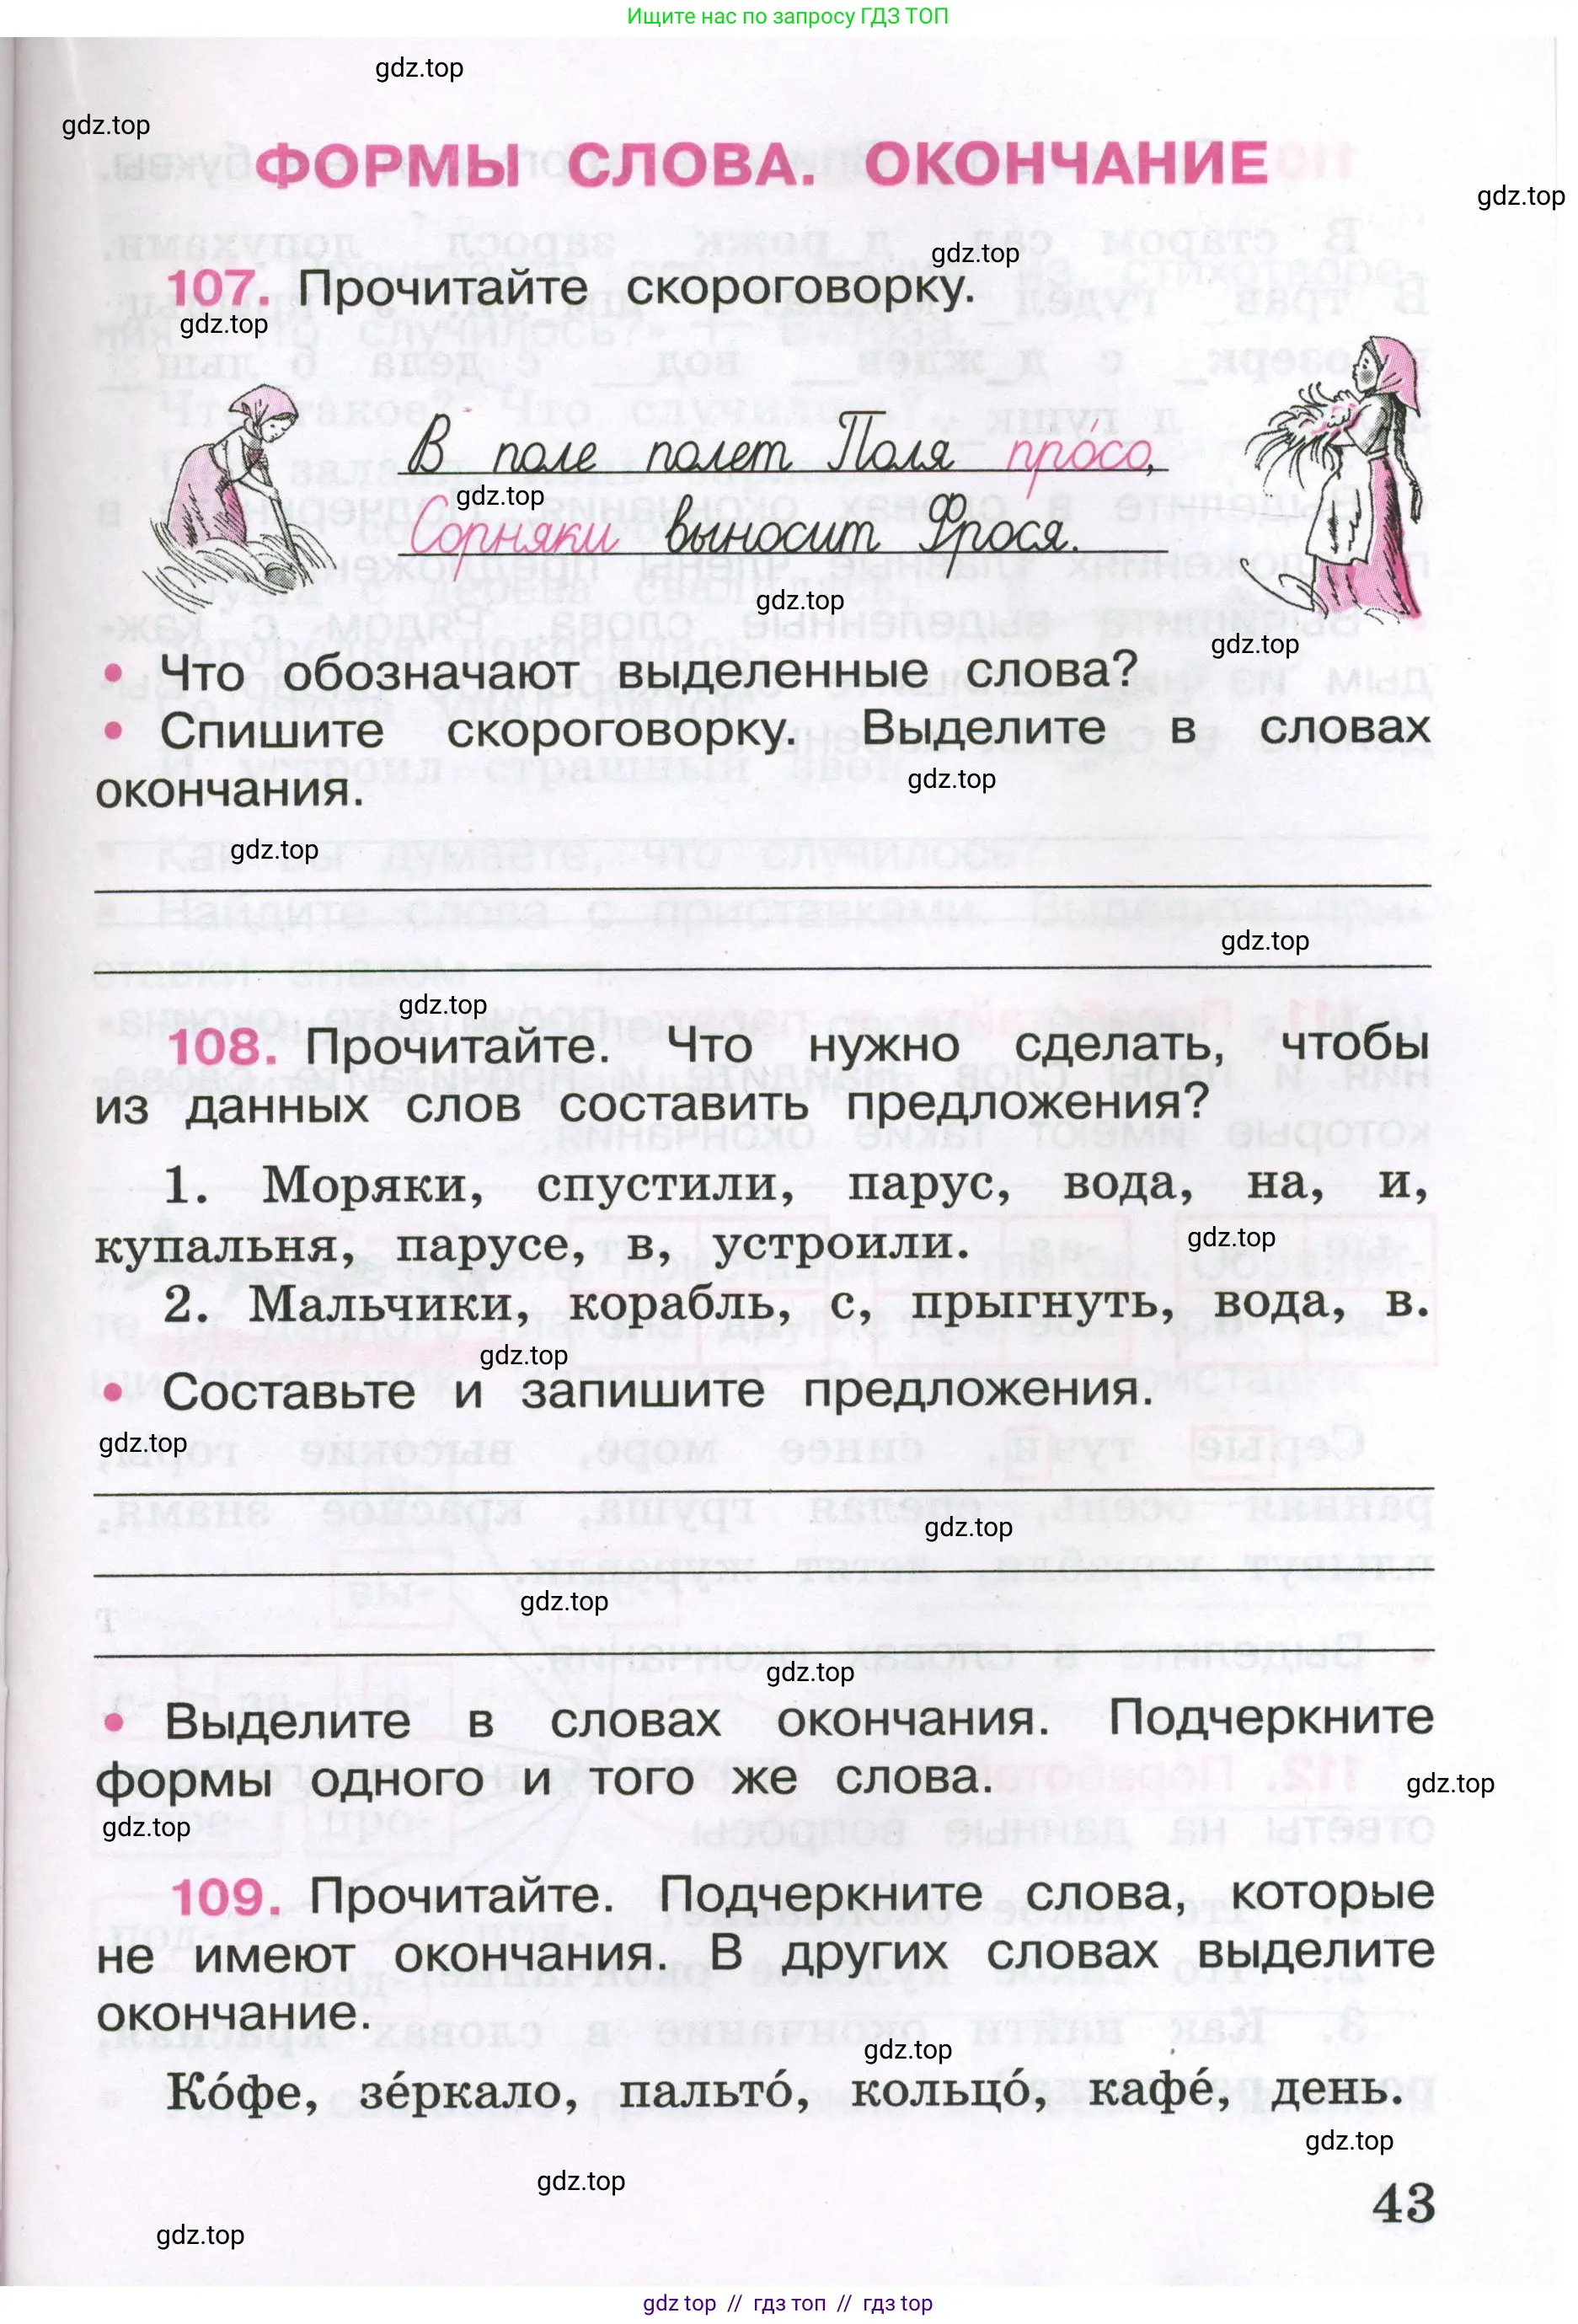 Ищите нас по запросу ГДЗ ТОП
gdz.top
gdz.top
ФОРМЫ СЛОВА. ОКОНЧАНИЕ
gdz.top
gdz.top
107. Прочитайте скороговорку.
gdz.top
В поле полет Поля про́со,
gdz.top
Сорняки выносит Фрося.
gdz.top
gdz.top
• Что обозначают выделенные слова?
• Спишите скороговорку. Выделите в словах
окончания.
gdz.top
gdz.top
gdz.top
gdz.top
108. Прочитайте. Что нужно сделать, чтобы
из данных слов составить предложения?
1. Моряки, спустили, парус, вода, на, и,
купальня, парусе, в, устроили.
gdz.top
2. Мальчики, корабль, с, прыгнуть, вода, в.
gdz.top
• Составьте и запишите предложения.
gdz.top
gdz.top
gdz.top
gdz.top
• Выделите в словах окончания. Подчеркните
формы одного и того же слова.
gdz.top
gdz.top
109. Прочитайте. Подчеркните слова, которые
не имеют окончания. В других словах выделите
окончание.
gdz.top
Ко́фе, зе́ркало, пальто́, кольцо́, кафе́, день.
gdz.top
gdz.top
43
gdz.top
gdz top // гдз топ // гдз top